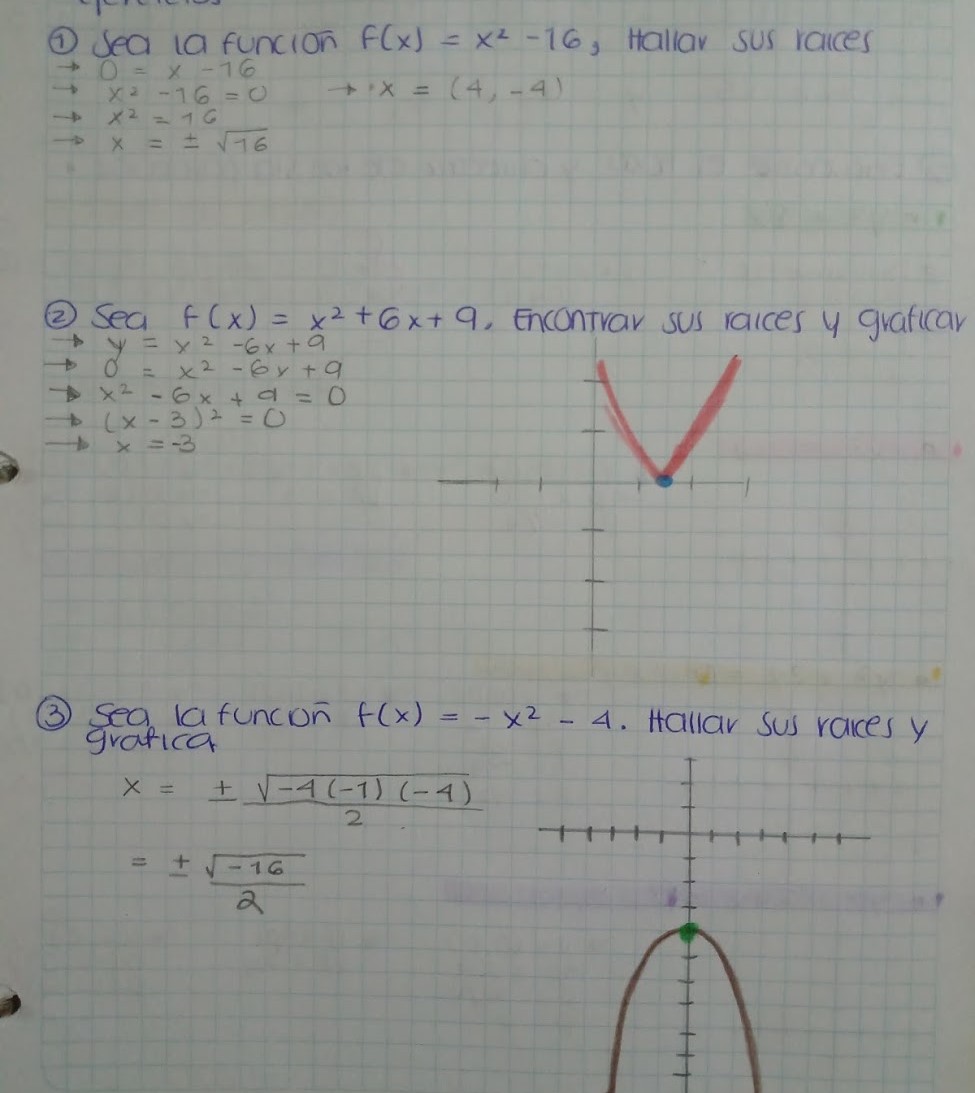 ejercicios
① Sea la función f(x) = x² - 16, Hallar sus raices
→ 0 = x - 16
→ x² - 16 = 0 → x = (4, -4)
→ x² = 16
→ x = ± √16
② Sea f(x) = x² + 6x + 9. Encontrar sus raices y graficar
→ y = x² - 6x + 9
→ 0 = x² - 6x + 9
→ x² - 6x + 9 = 0
→ (x - 3)² = 0
→ x = -3
③ Sea la función f(x) = - x² - 4. Hallar sus raices y
grafica
x = ± √-4(-1)(-4)
2
= ± √-16
2